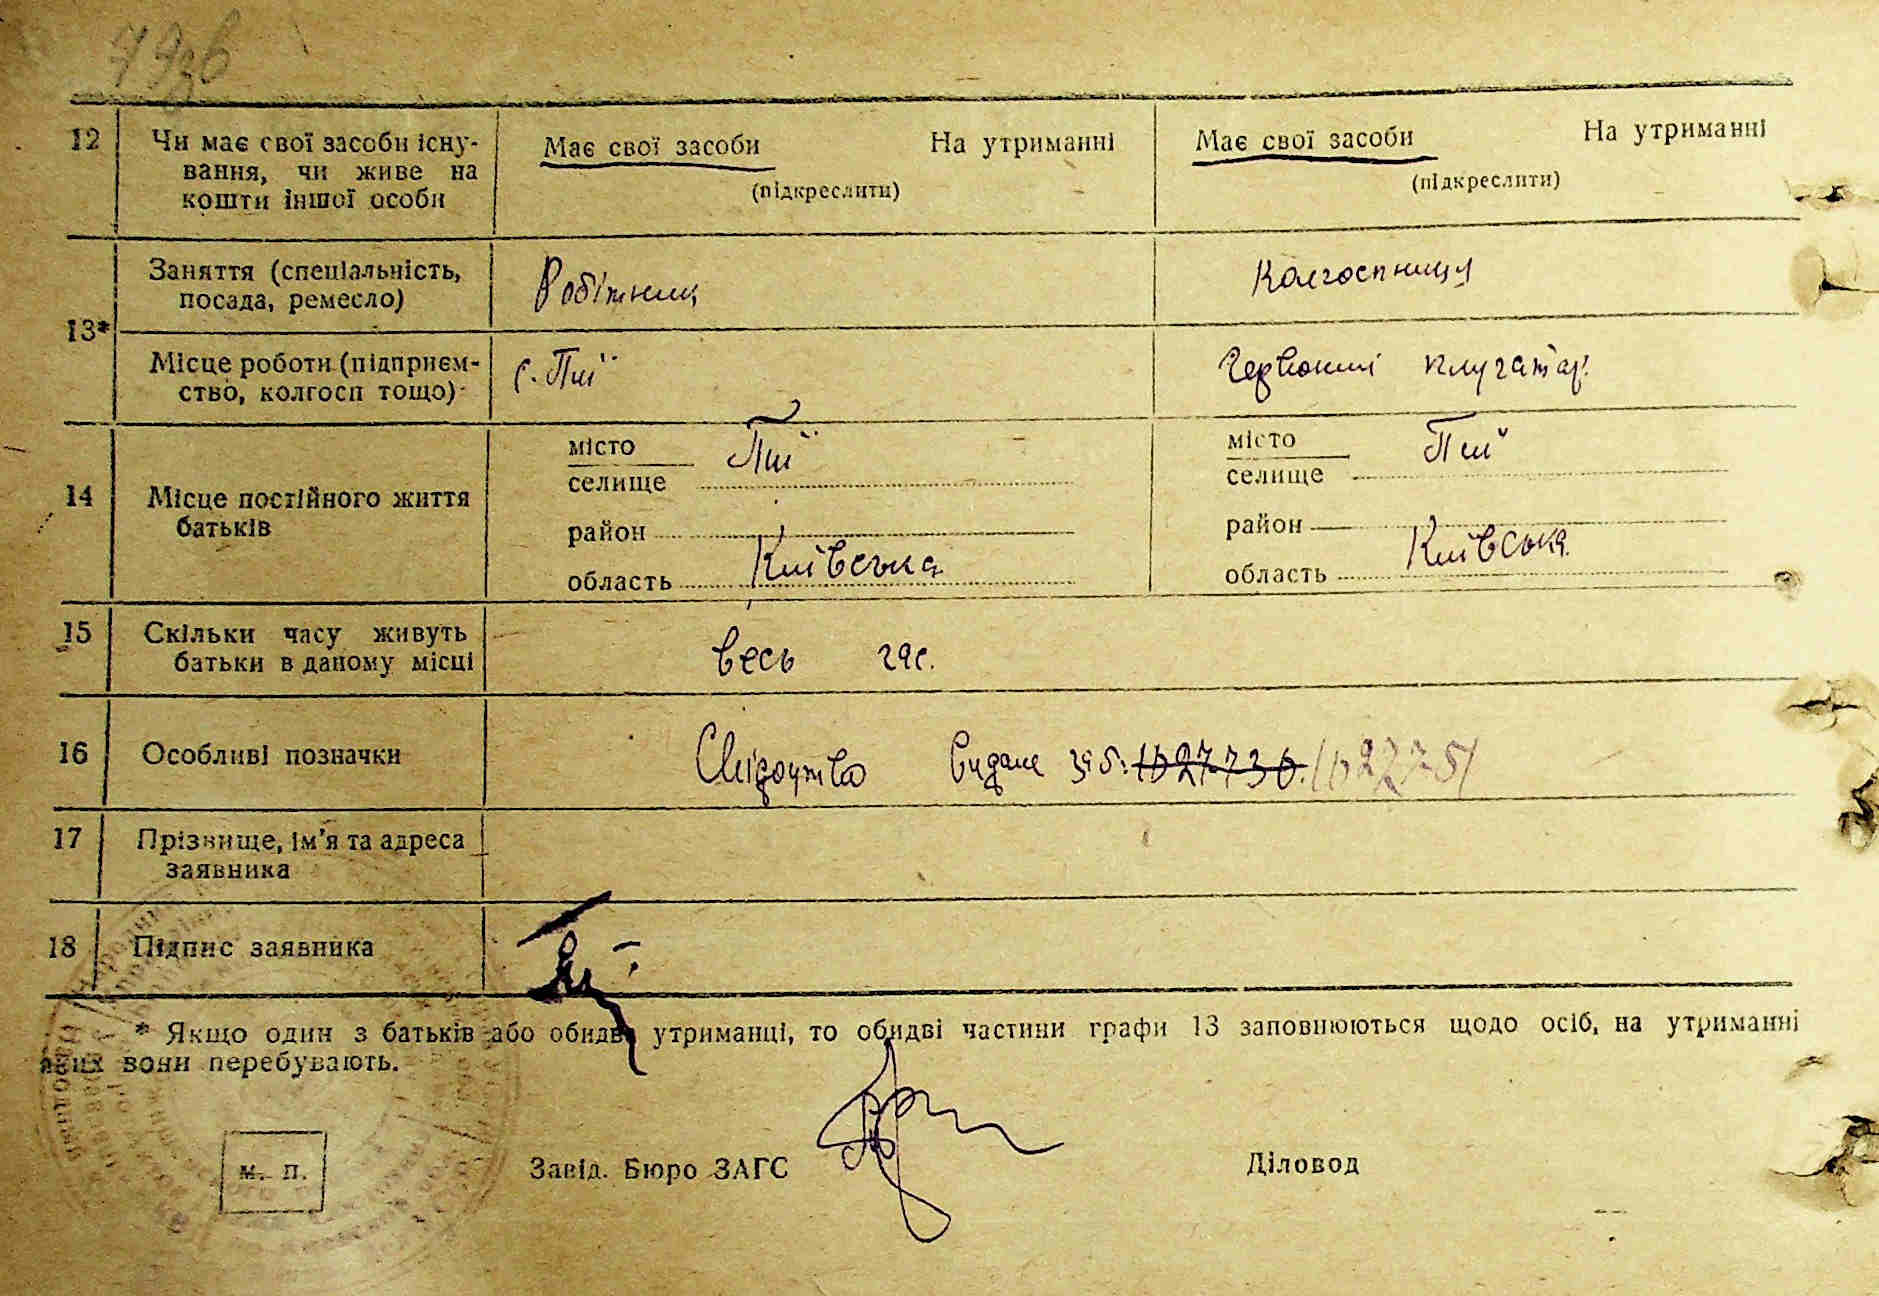 12 Чи має свої засоби існу-
вання, чи живе на
кошти іншої особи
Має свої засоби На утриманні
(підкреслити)
Має свої засоби На утриманні
(підкреслити)
13*
Заняття (спеціальність,
посада, ремесло)
Робітниц
Колгоспниця
Місце роботи (підприєм-
ство, колгосп тощо)
с. Пії
Червоний плугатар.
14 Місце постійного життя
батьків
місто
селище
Пії
район
область Київська
місто
селище
Пії
район
область Київська
15 Скільки часу живуть
батьки в даному місці
весь час.
16 Особливі позначки
Свідоцтво видане за б.
17 Прізвище, ім'я та адреса
заявника
18 Підпис заявника
* Якщо один з батьків або обидва утриманці, то обидві частини графи 13 заповнюються щодо осіб, на утриманні
яких вони перебувають.
М. П.
Завід. Бюро ЗАГС
Діловод